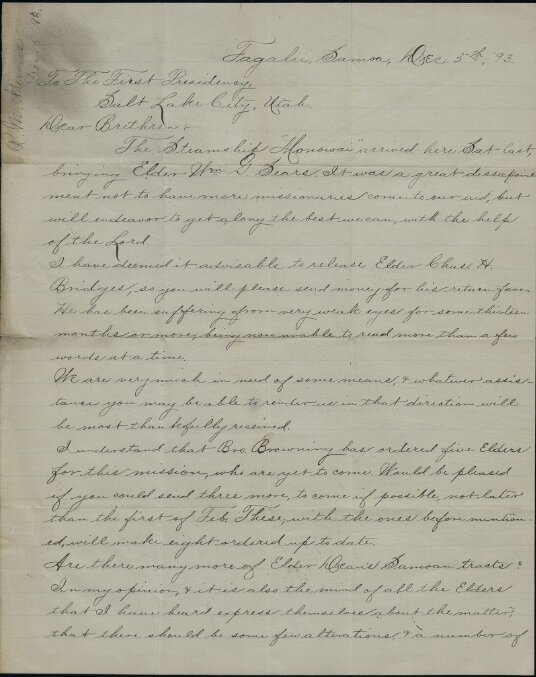 Fagalii, Samoa, Dec 5th, '93.
To The First Presidency,
Salt Lake City, Utah.
Dear Brethren:
The Steamship "Monowai" arrived here Sat last,
bringing Elder Wm G. Sears. It was a great dissapoint
ment not to have more missionaries come to our aid, but
will endeavor to get along the best we can, with the help
of the Lord.
I have deemed it advisable to release Elder Chas. H.
Bridges, so you will please send money for his return fare.
He has been suffering from very weak eyes for some thirteen
months or more, being now unable to read more than a few
words at a time.
We are very much in need of some means, & whatever assis-
tance you may be able to render us in that direction will
be most thankfully received.
I understand that Bro. Browning has ordered five Elders
for this mission, who are yet to come. Would be pleased
if you could send three more, to come if possible, not later
than the first of Feb. These, with the ones before mention-
ed, will make eight ordered up to date.
Are there many more of Elder Dean's Samoan tracts?
In my opinion, & it is also the mind of all the Elders
that I have heard express themselves about the matter,
that there should be some few alterations, & a number of